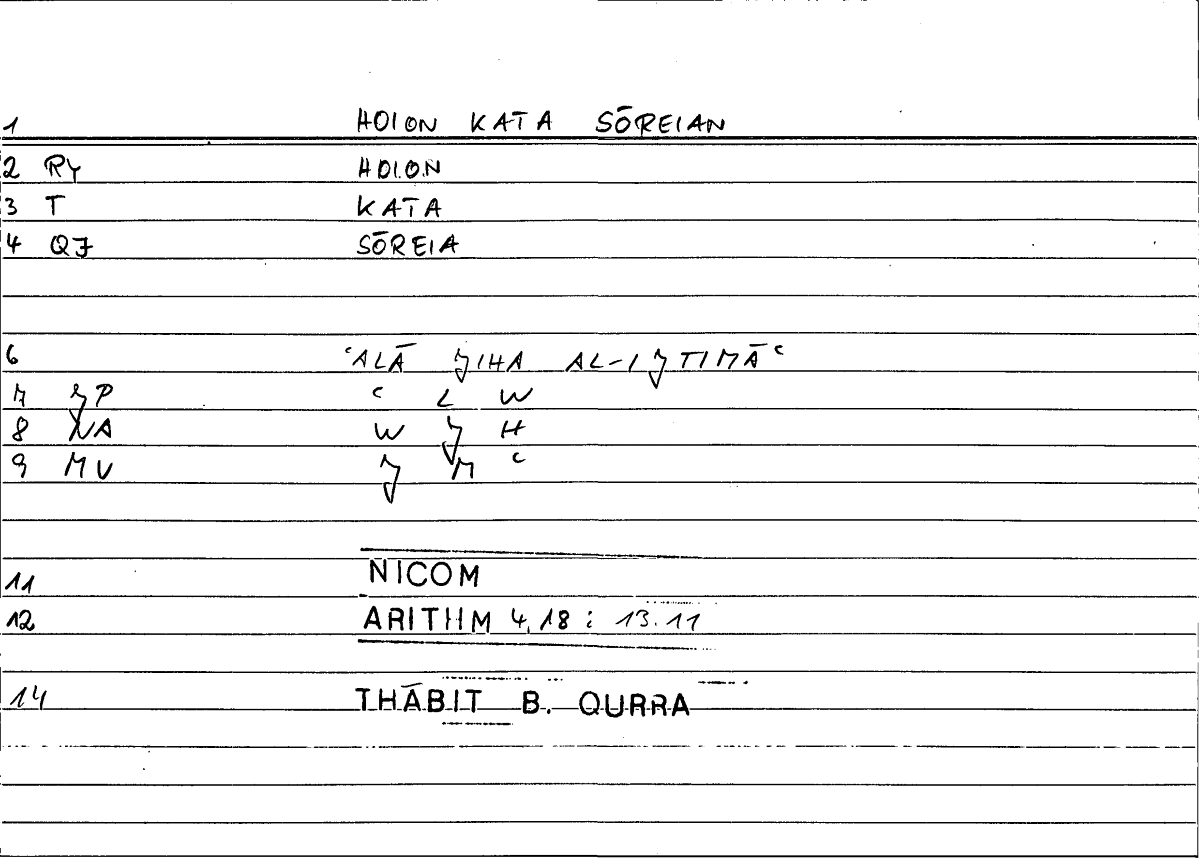 1 HOION KATA SŌREIAN
2 RY HOION
3 T KATA
4 QJ SŌREIA
6 ʿALĀ JIHA AL-IJTIMĀʿ
7 JP ʿ L W
8 NA W J H
9 MV J M ʿ
11 NICOM
12 ARITHM 4,18 : 13.11
14 THĀBIT B. QURRA